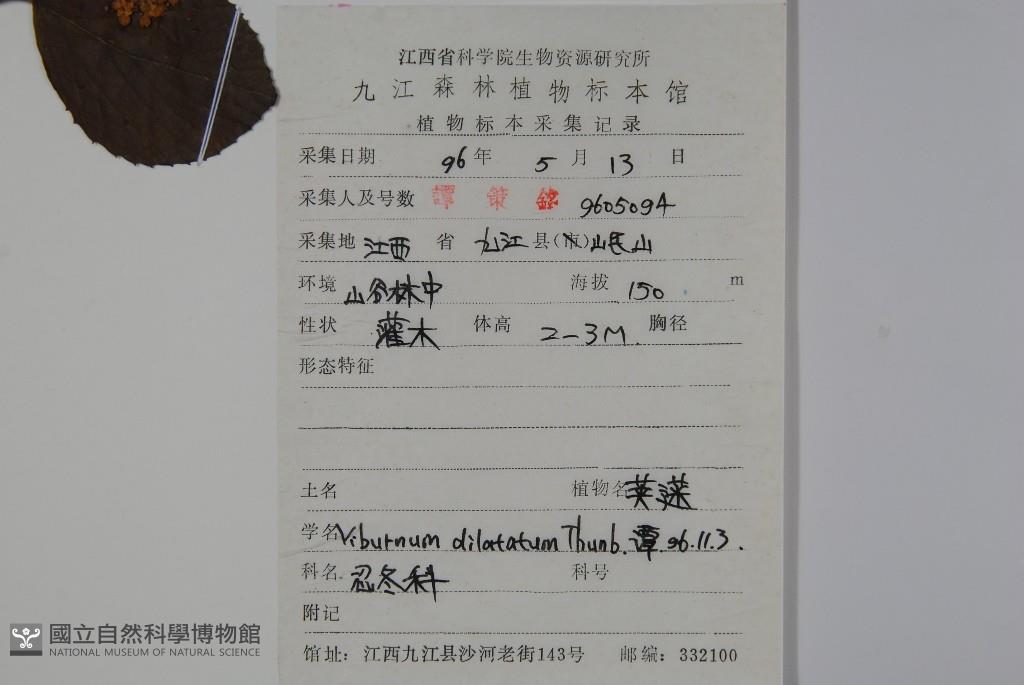 江西省科学院生物资源研究所
九江森林植物标本馆
植物标本采集记录
采集日期 96年 5月 13 日
采集人及号数 譚策銘 9605094
采集地 江西 省 九江 县(市) 岷山
环境 山谷林中 海拔 150 m
性状 灌木 体高 2-3M. 胸径
形态特征
土名 植物名 荚蒾
学名 Viburnum dilatatum Thunb. 谭 96.11.3.
科名 忍冬科 科号
附记
馆址：江西九江县沙河老街143号 邮编：332100
國立自然科學博物館
NATIONAL MUSEUM OF NATURAL SCIENCE